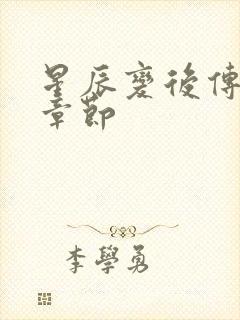 星辰變後傳
章節
李學勇